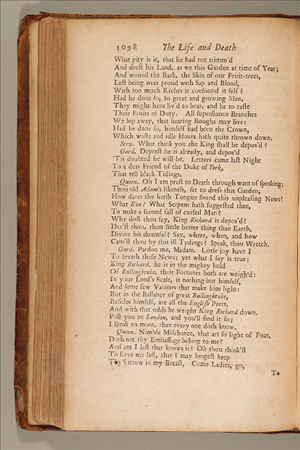 1098 The Life and Death
What pity is it, that he had not trimm'd
And drest his Land, as we this Garden at time of Year;
And wound the Bark, the Skin of our Fruit-trees,
Lest being over proud with Sap and Blood,
With too much Riches it confound it self?
Had he done so, to great and growing Men,
They might have liv'd to bear, and he to taste
Their Fruits of Duty. All superfluous Branches
We lop away, that bearing Boughs may live:
Had he done so, himself had born the Crown,
Which waste and idle Hours hath quite thrown down.
Serv. What think you the King shall be depos'd?
Gard. Deprest he is already, and depos'd
'Tis doubted he will be. Letters came last Night
To a dear Friend of the Duke of York,
That tell black Tidings,
Queen. Oh I am prest to Death through want of speaking;
Thou old Adam's likeness, set to dress this Garden,
How dares thy harsh Tongue found this unpleasing News?
What Eve? What Serpent hath suggested thee,
To make a second fall of cursed Man?
Why dost thou say, King Richard is depos'd?
Dar'st thou, thou little better thing than Earth,
Divine his downfal? Say, where, when, and how
Cam'st thou by this ill Tydings? Speak, thou Wretch.
Gard. Pardon me, Madam. Little joy have I
To breath these News; yet what I say is true;
King Richard, he is in the mighty hold
Of Bullingbroke, their Fortunes both are weigh'd:
In your Lord's Scale, is nothing but himself,
And some few Vanities that make him light:
But in the Ballance of great Bullingbroke,
Besides himself, are all the English Peers,
And with that odds he weighs King Richard down.
Post you to London, and you'll find it so;
I speak no more, than every one doth know.
Queen. Nimble Mischance, that art so light of Foot,
Doth not thy Embassage belong to me?
And am I last that knows it? Oh thou think'st
To serve me last, that I may longest keep
Thy Sorrow in my Breast. Come Ladies, go,
To